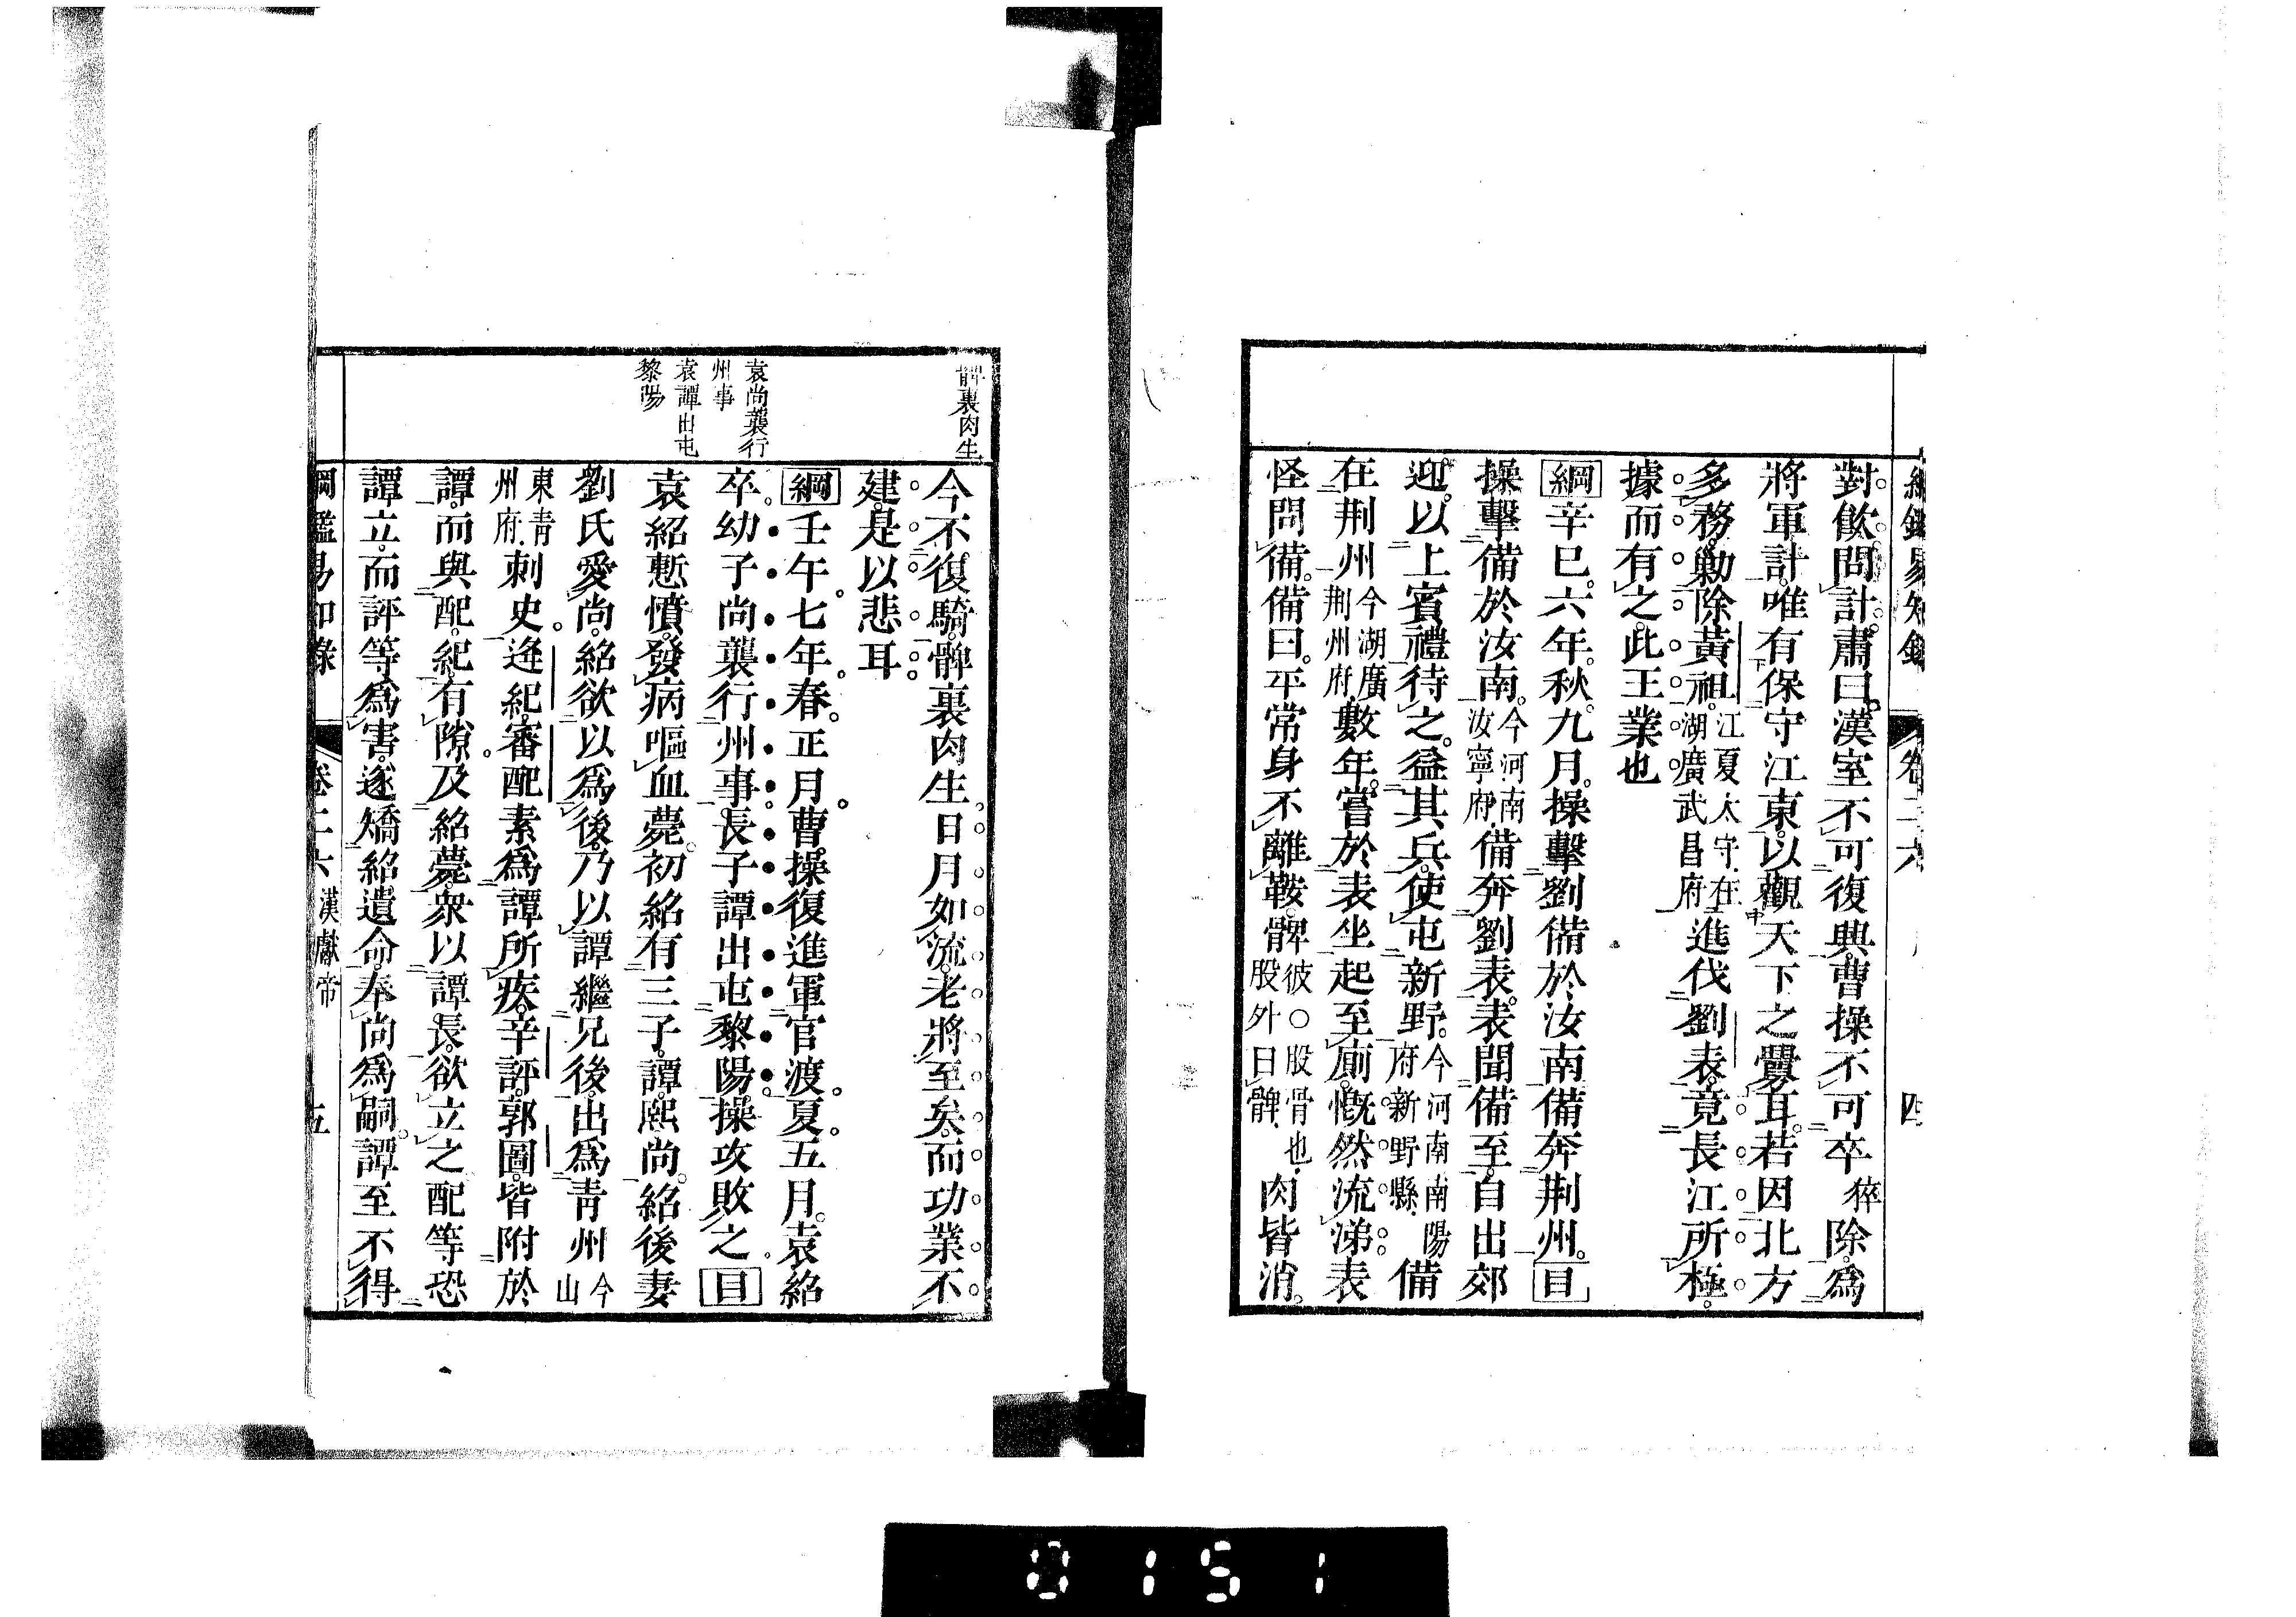 綱鑑易知錄 卷二六 四
對飲問計肅曰漢室不可復興曹操不可卒猝除爲
將軍計唯有保守江東以觀天下之釁耳若因北方
多務勦除黃祖江夏太守在湖廣武昌府進伐劉表竟長江所極
據而有之此王業也
綱辛巳六年秋九月操擊劉備於汝南備奔荆州目
操擊備於汝南今河南汝寧府備奔劉表表聞備至自出郊
迎以上賓禮待之益其兵使屯新野今河南南陽府新野縣備
在荆州今湖廣荆州府數年嘗於表坐起至廁慨然流涕表
怪問備備曰平常身不離鞍髀彼○股骨也股外曰髀肉皆消
髀裏肉生
今不復騎髀裏肉生日月如流老將至矣而功業不
建是以悲耳
綱壬午七年春正月曹操復進軍官渡夏五月袁紹
袁尚襲行州事
卒幼子尚襲行州事長子譚出屯黎陽操攻敗之目
袁譚出屯黎陽
袁紹慙憤發病嘔血薨初紹有三子譚熙尚紹後妻
劉氏愛尚紹欲以爲後乃以譚繼兄後出爲青州今山
東青州府刺史逄紀審配素爲譚所疾辛評郭圖皆附於
譚而與配紀有隙及紹薨衆以譚長欲立之配等恐
譚立而評等爲害遂矯紹遺命奉尚爲嗣譚至不得
綱鑑易知錄 卷二六 漢獻帝 五
0151